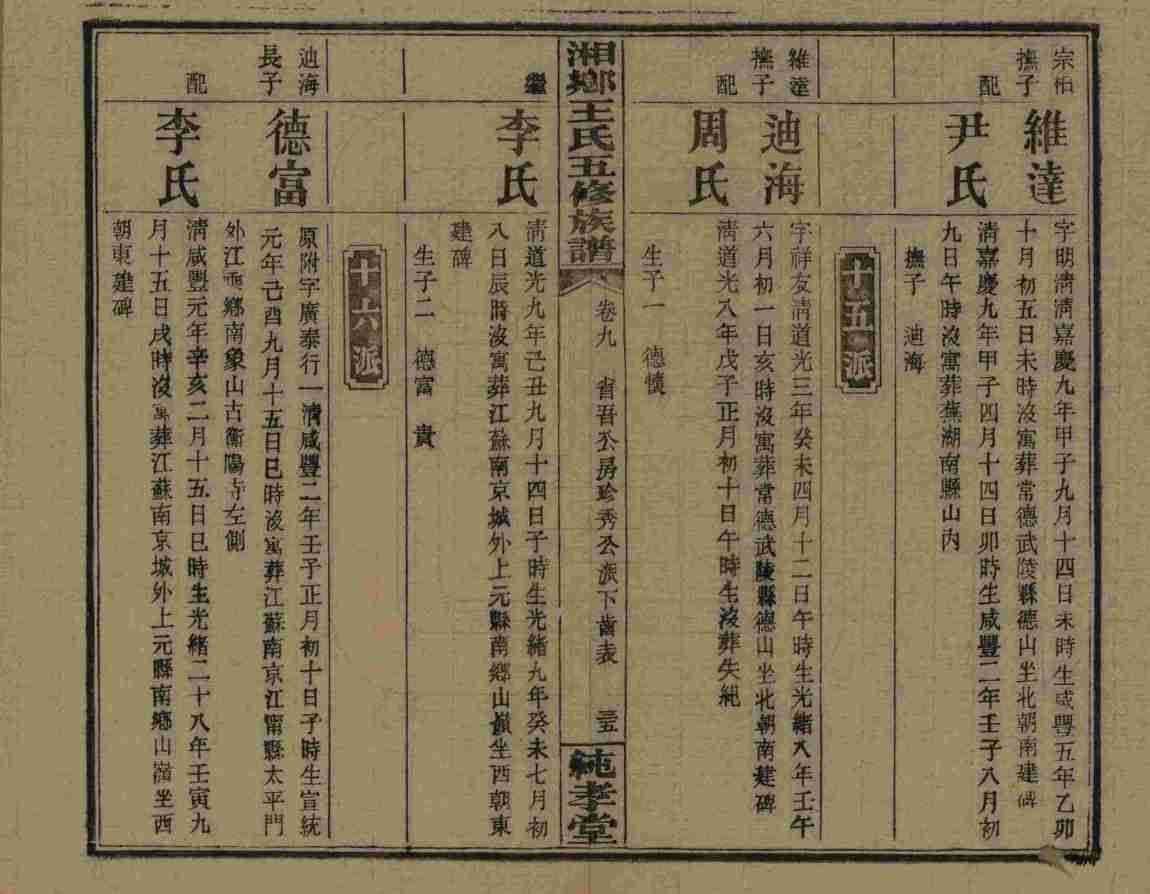 宗柏
撫子
維達
字明清清嘉慶九年甲子九月十四日未時生咸豐五年乙卯
十月初五日未時沒寓葬常德武陵縣德山坐北朝南建碑
配
尹氏
清嘉慶九年甲子四月十四日卯時生咸豐二年壬子八月初
九日午時沒寓葬蕪湖南縣山內
撫子 迪海
十五派
維達
撫子
迪海
字祥友清道光三年癸未四月十二日午時生光緒八年壬午
六月初一日亥時沒寓葬常德武陵縣德山坐北朝南建碑
配
周氏
清道光八年戊子正月初十日午時生沒葬失紀
生子一 德懷
湘鄉王氏五修族譜
卷九 省吾公房珍秀公派下齒表 三五
純孝堂
繼
李氏
清道光九年己丑九月十四日子時生光緒九年癸未七月初
八日辰時沒寓葬江蘇南京城外上元縣南鄉山嶺坐西朝東
建碑
生子二 德富 貴
十六派
迪海
長子
德富
原附字廣泰行一清咸豐二年壬子正月初十日子時生宣統
元年己酉九月十五日巳時沒寓葬江蘇南京江甯縣太平門
外江乘鄉南象山古衡陽寺左側
配
李氏
清咸豐元年辛亥二月十五日巳時生光緒二十八年壬寅九
月十五日戌時沒寓葬江蘇南京城外上元縣南鄉山嶺坐西
朝東建碑